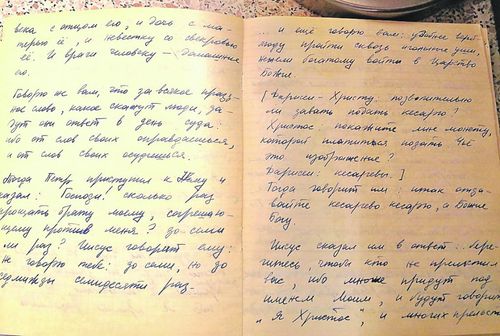 века с отцом его, и дочь с ма-
терью её, и невестку со свекровью
её. И враги человеку - домашние
его.
Говорю же вам, что за всякое празд-
ное слово, какое скажут люди, да-
дут они ответ в день суда:
ибо от слов своих оправдаешься,
и от слов своих осудишься.
Тогда Петр приступил к Нему и
сказал: Господи! сколько раз
прощать брату моему, согрешаю-
щему против меня? до семи
ли раз? Иисус говорит ему:
не говорю тебе: до семи, но до
седмижды семидесяти раз.
... и ещё говорю вам: удобнее верб-
люду пройти сквозь игольные уши,
нежели богатому войти в Царство
Божие.
[Фарисеи - Христу: позволительно
ли давать подать кесарю?
Христос: покажите мне монету,
которой платится подать. Чьё
это изображение?
Фарисеи: кесаревы.]
Тогда говорит им: итак отда-
вайте кесарево кесарю, а Божие
Богу.
Иисус сказал им в ответ: ... бере-
гитесь, чтобы кто не прельстил
вас, ибо многие придут под
именем Моим, и будут говорить
"Я Христос", и многих прельстят